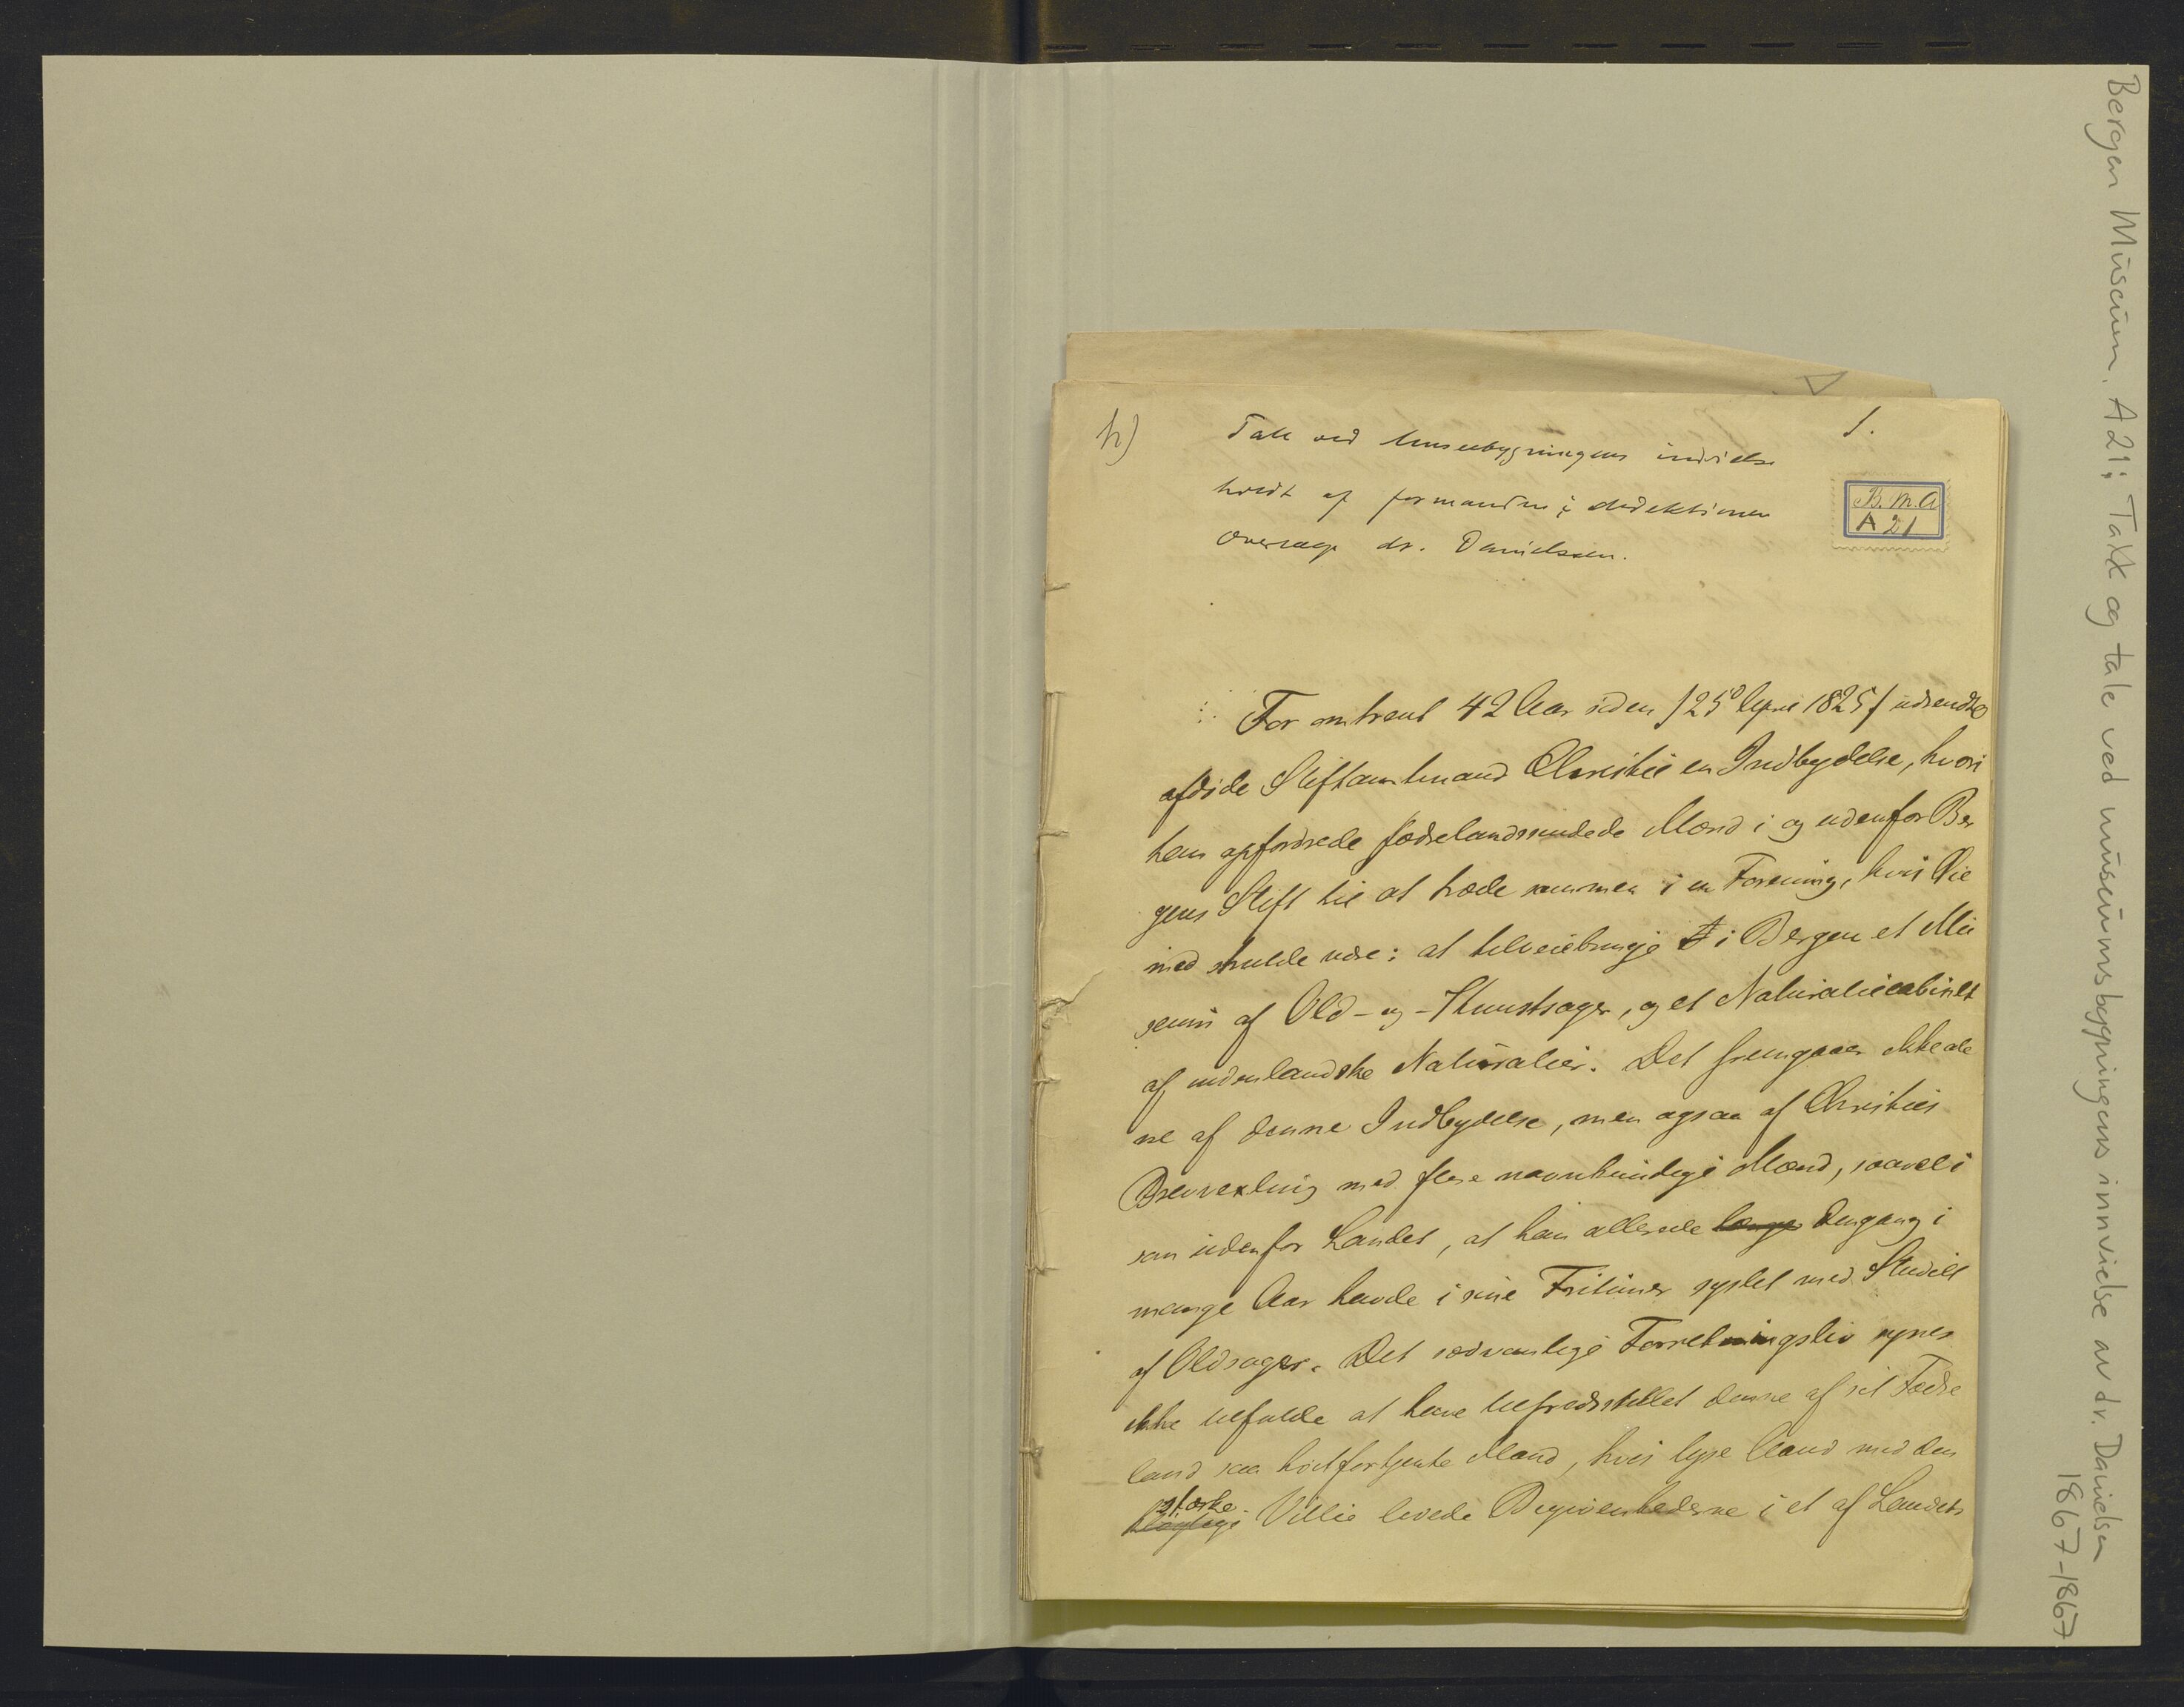 Bergen Museum. A21: Takk og tale ved museumsbygningens innvielse av dr. Danielsen
1867-1867
h)
1.
B.M.A
A 21
Tale ved Museumbygningens indvielse
holdt af formanden i direktionen
overlæge dr. Danielssen.
For omtrent 42 Aar siden /25de April 1825/ udsendte
afdøde Stiftamtmand Christie en Indbydelse, hvori
han opfordrede fædrelandssindede Mænd i og udenfor Ber
gens Stift til at træde sammen i en Forening, hvis Øie
med skulde være: at tilveiebringe i Bergen et Mu
seum af Old- og Kunstsager, og et Naturaliecabinet
af indenlandske Naturalier. Det fremgaaer ikke ale
ne af denne Indbydelse, men ogsaa af Christies
Brevvexling med flere navnkundige Mænd, saavel i
som udenfor Landet, at han allerede længe dengang i
mange Aar havde i sine Fritimer syslet med Studiet
af Oldsager. Det sædvanlige Forretningsliv synes
ikke tilfulde at have tilfredsstillet denne af sit Fædre
land saa høitfortjente Mand, hvis lyse Aand med den
stærke
Villie levede Begivenhederne i et af Landets